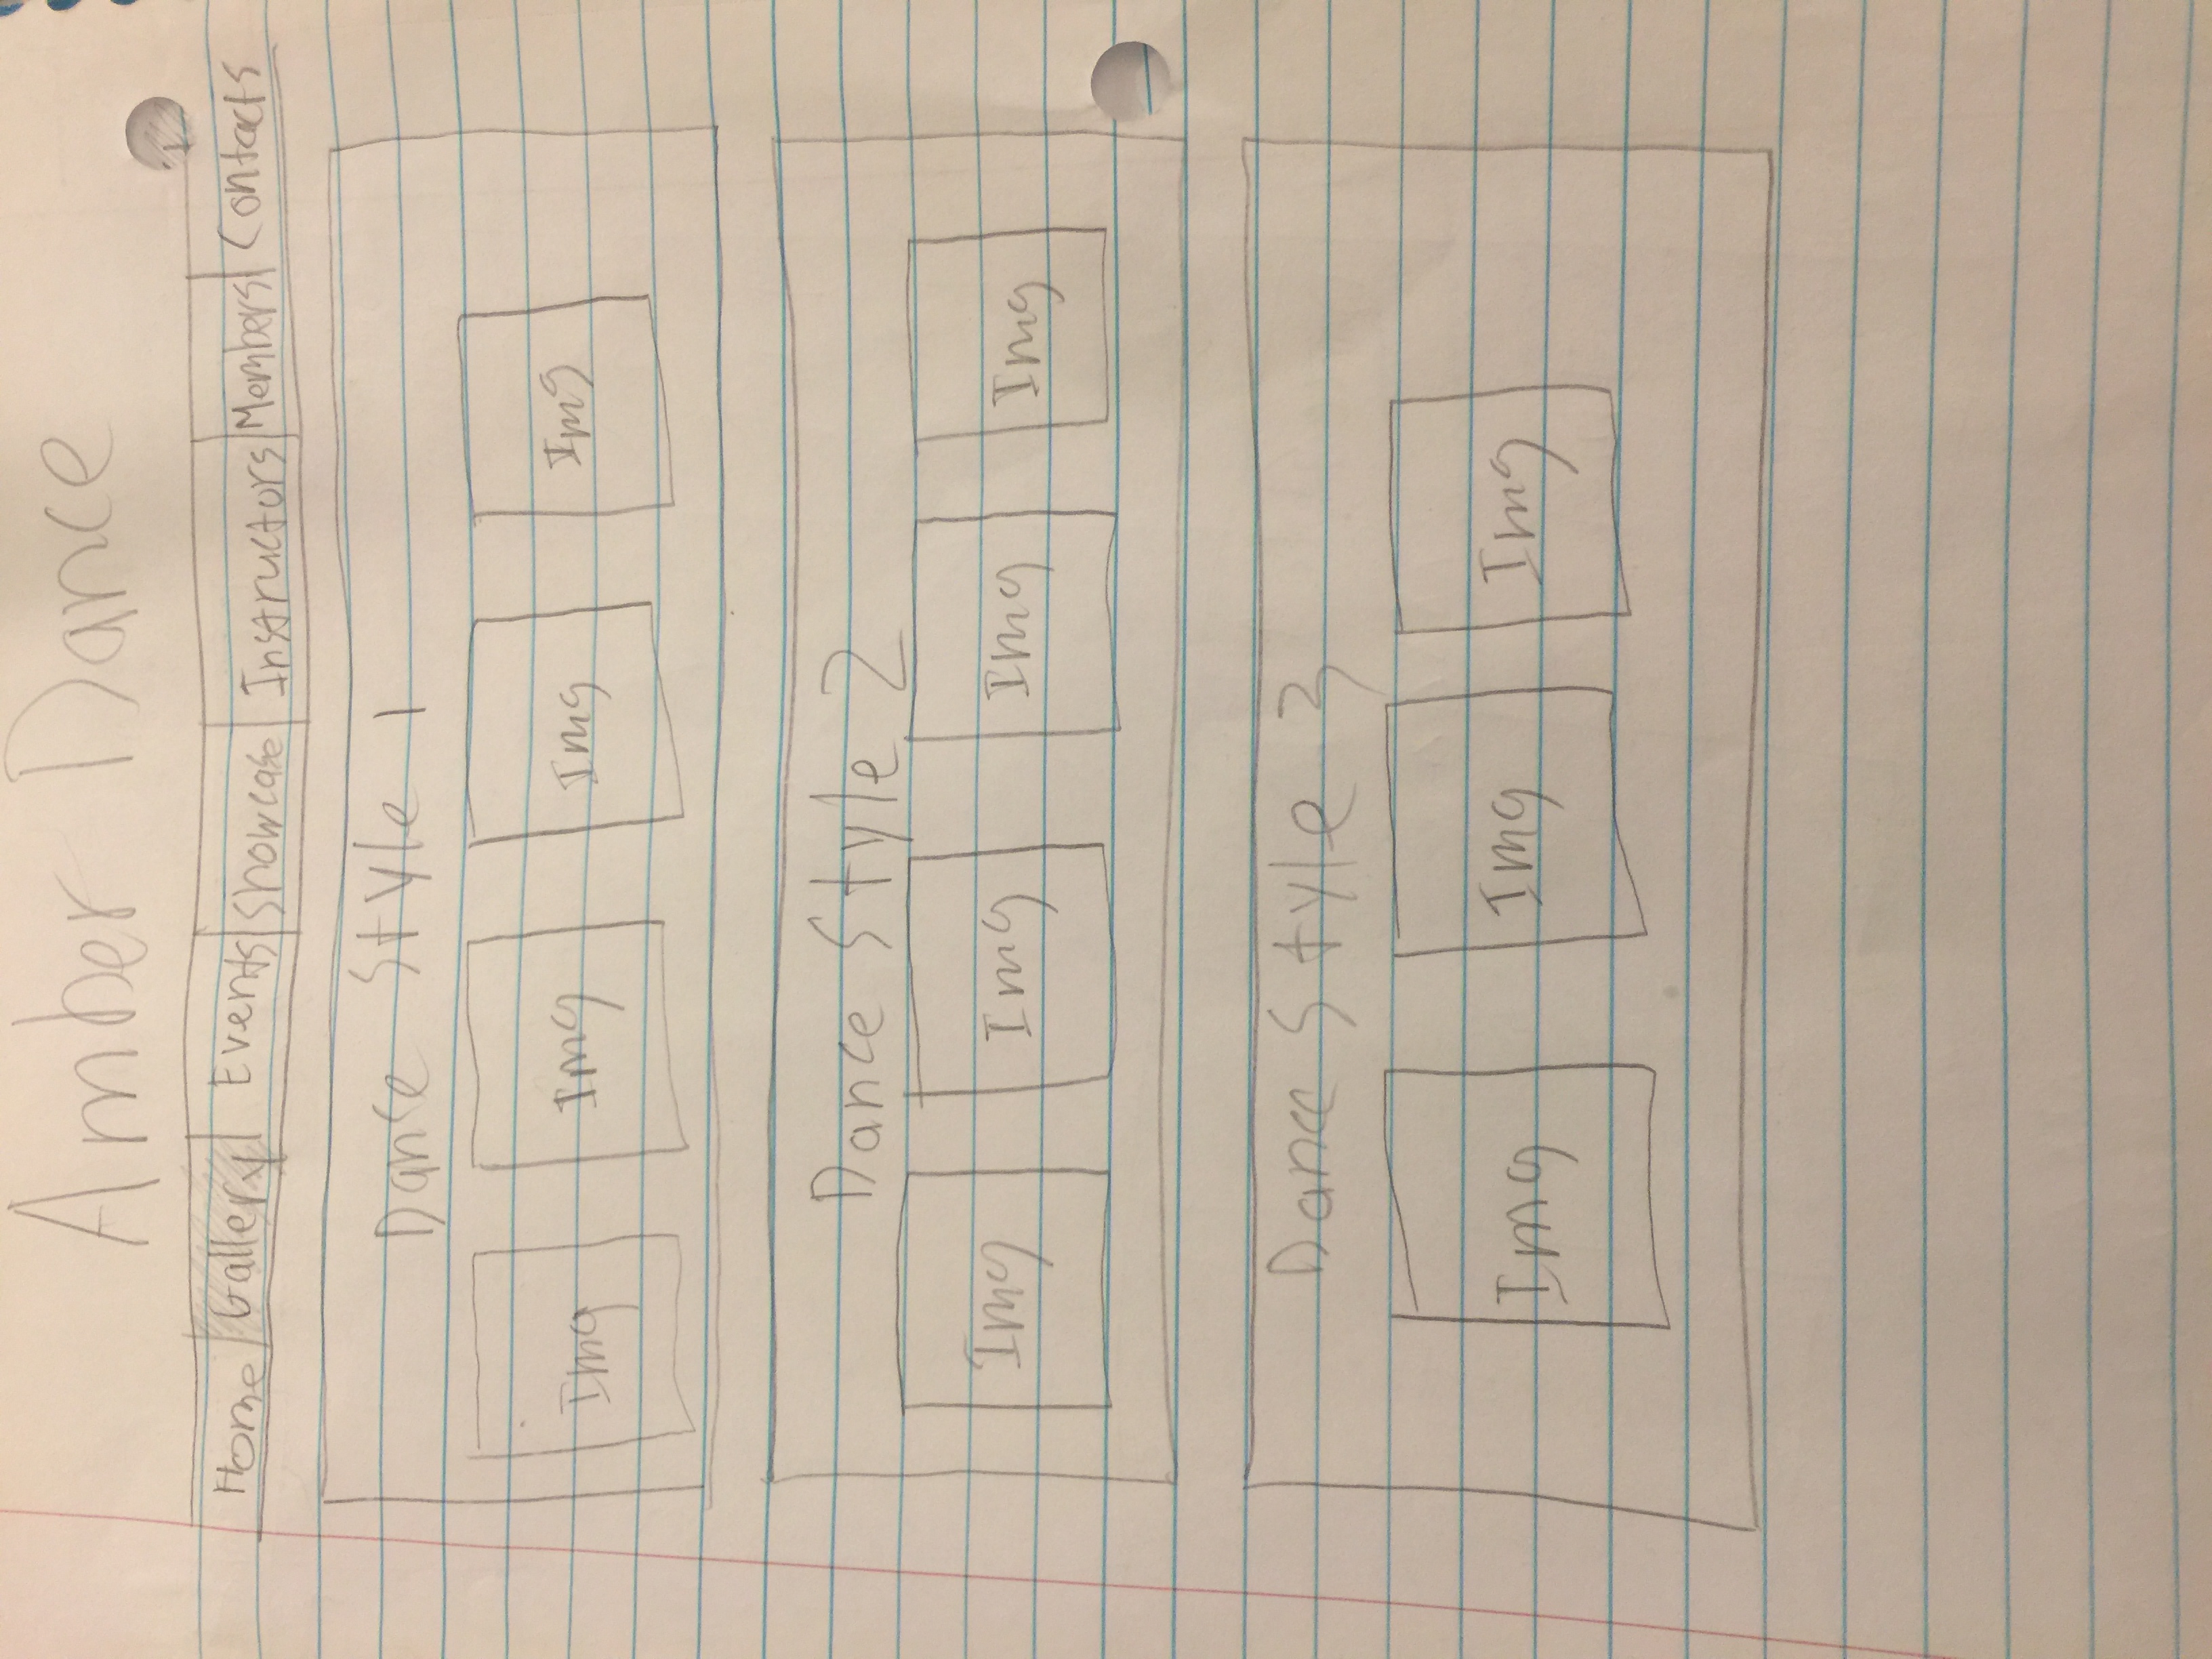 Amber Dance
Home Gallery Events Showcase Instructors Members Contacts
Dance Style 1
Img Img Img Img
Dance Style 2
Img Img Img Img
Dance Style 3
Img Img Img